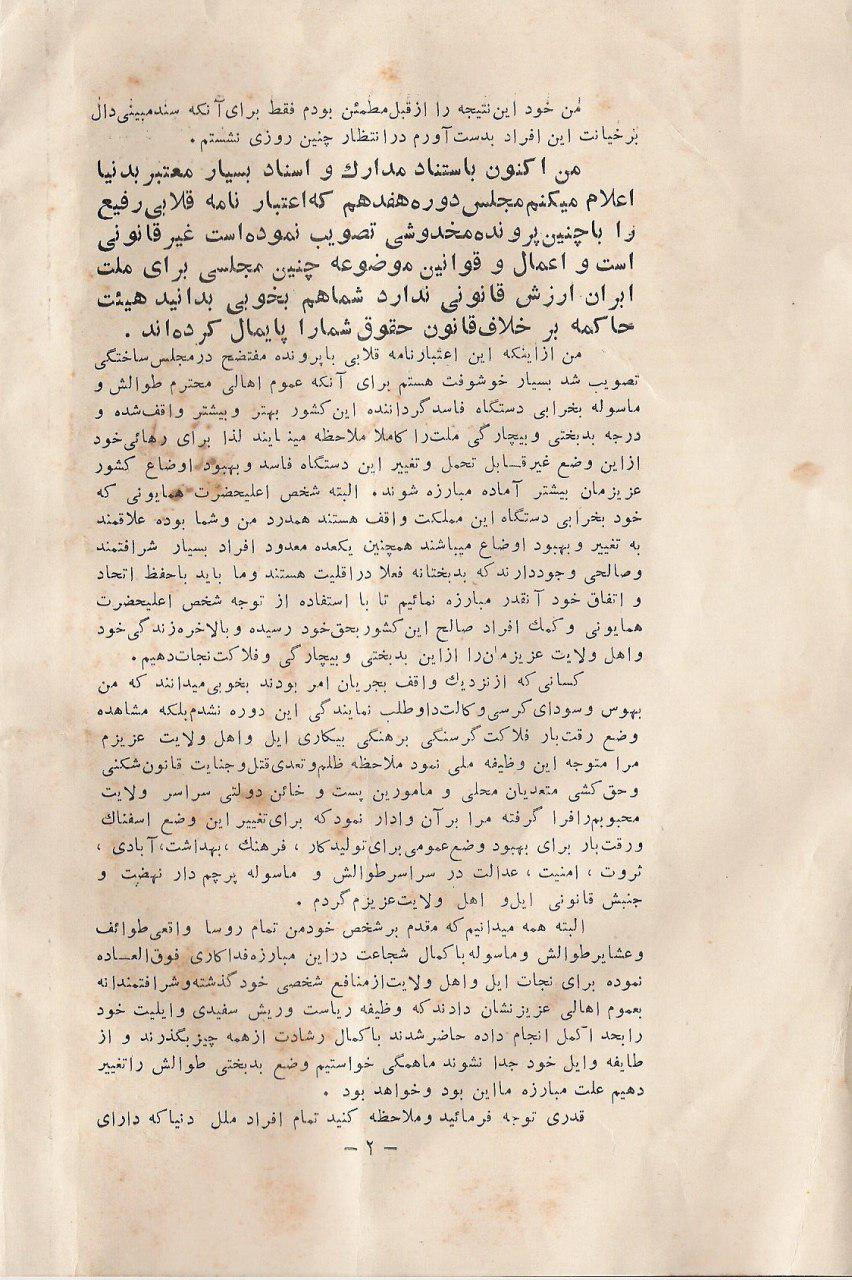 من خود این نتیجه را از قبل مطمئن بودم فقط برای آنکه سند مبینی دال
بر خیانت این افراد بدست آورم در انتظار چنین روزی نشستم.
من اکنون باستناد مدارك و اسناد بسیار معتبر بدنیا
اعلام میکنم مجلس دوره هفدهم که اعتبار نامه قلابی رفیع
را با چنین پرونده مخدوشی تصویب نموده است غیر قانونی
است و اعمال و قوانین موضوعه چنین مجلسی برای ملت
ایران ارزش قانونی ندارد شما هم بخوبی بدانید هیئت
حاکمه بر خلاف قانون حقوق شما را پایمال کرده اند.
من از اینکه این اعتبارنامه قلابی با پرونده مفتضح در مجلس ساختگی
تصویب شد بسیار خوشوقت هستم برای آنکه عموم اهالی محترم طوالش و
ماسوله بخرابی دستگاه فاسد گرداننده این کشور بهتر و بیشتر واقف شده و
درجه بدبختی و بیچارگی ملت را کاملا ملاحظه مینمایند لذا برای رهائی خود
از این وضع غیر قابل تحمل و تغییر این دستگاه فاسد و بهبود اوضاع کشور
عزیزمان بیشتر آماده مبارزه شوند. البته شخص اعلیحضرت همایونی که
خود بخرابی دستگاه این مملکت واقف هستند همدرد من و شما بوده علاقمند
به تغییر و بهبود اوضاع میباشند همچنین یکعده معدود افراد بسیار شرافتمند
و صالحی وجود دارند که بدبختانه فعلا در اقلیت هستند و ما باید با حفظ اتحاد
و اتفاق خود آنقدر مبارزه نمائیم تا با استفاده از توجه شخص اعلیحضرت
همایونی و کمك افراد صالح این کشور بحق خود رسیده و بالاخره زندگی خود
و اهل ولایت عزیزمان را از این بدبختی و بیچارگی و فلاکت نجات دهیم.
کسانی که از نزدیك واقف بجریان امر بودند بخوبی میدانند که من
بهوس و سودای کرسی وکالت داوطلب نمایندگی این دوره نشدم بلکه مشاهده
وضع رقت بار فلاکت گرسنگی برهنگی بیکاری ایل و اهل ولایت عزیزم
مرا متوجه این وظیفه ملی نمود ملاحظه ظلم و تعدی قتل و جنایت قانون شکنی
و حق کشی متعدیان محلی و مامورین پست و خائن دولتی سراسر ولایت
محبوبم را فرا گرفته مرا بر آن وادار نمود که برای تغییر این وضع اسفناك
و رقت بار برای بهبود وضع عمومی برای تولید کار، فرهنك، بهداشت، آبادی،
ثروت، امنیت، عدالت در سراسر طوالش و ماسوله پرچم دار نهضت و
جنبش قانونی ایل و اهل ولایت عزیزم گردم.
البته همه میدانیم که مقدم بر شخص خود من تمام روسا واقعی طوائف
و عشایر طوالش و ماسوله با کمال شجاعت در این مبارزه فداکاری فوق العاده
نموده برای نجات ایل و اهل ولایت از منافع شخصی خود گذشته و شرافتمندانه
بعموم اهالی عزیز نشان دادند که وظیفه ریاست و ریش سفیدی و ایلیت خود
را بحد اکمل انجام داده حاضر شدند با کمال رشادت از همه چیز بگذرند و از
طایفه و ایل خود جدا نشوند ما همگی خواستیم وضع بدبختی طوالش را تغییر
دهیم علت مبارزه ما این بود و خواهد بود.
قدری توجه فرمائید و ملاحظه کنید تمام افراد ملل دنیا که دارای
- ۲ -